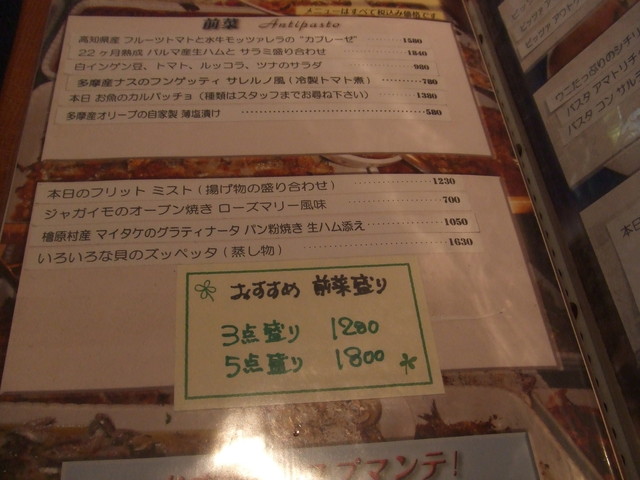 メニューはすべて税込み価格です
前菜 Antipasto
高知県産 フルーツトマトと水牛モッツァレラの"カプレーゼ" 1580
22ヶ月熟成 パルマ産生ハムと サラミ盛り合わせ 1840
白インゲン豆、トマト、ルッコラ、ツナのサラダ 980
多摩産ナスのフンゲッティ サレルノ風(冷製トマト煮) 780
本日 お魚のカルパッチョ(種類はスタッフまでお尋ね下さい) 1380
多摩産オリーブの自家製 薄塩漬け 580
本日のフリット ミスト(揚げ物の盛り合わせ) 1230
ジャガイモのオーブン焼き ローズマリー風味 700
檜原村産 マイタケのグラティナータ パン粉焼き 生ハム添え 1050
いろいろな貝のズッペッタ(蒸し物) 1630
おすすめ 前菜盛り
3点盛り 1280
5点盛り 1800
ピッツァ アウトク
ウニたっぷりのシチリ
パスタ アマトリチ
パスタ コン サル
本日
プマンテ!